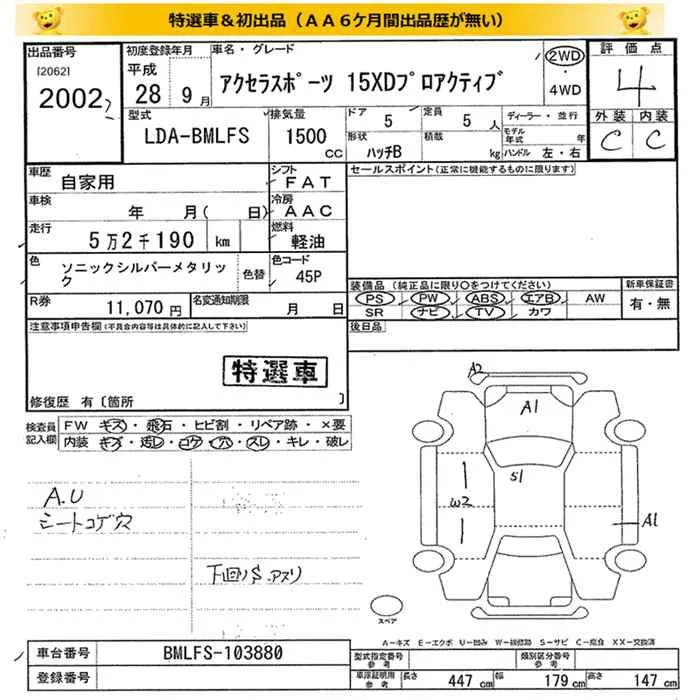 特選車＆初出品（ＡＡ６ケ月間出品歴が無い）
出品番号
[2062]
2002
初度登録年月
平成
28年 9月
車名・グレード
アクセラスポーツ 15XDプロアクティブ
2WD
・
4WD
評価点
4
外装 内装
C C
型式
LDA-BMLFS
排気量
1500
CC
ドア
5
定員
5 人
形状
ハッチB
積載
kg
ディーラー・並行
モデル年式 年
ハンドル 左・右
車歴
自家用
シフト
FAT
車検
年 月( 日)
冷房
AAC
走行
5万2千190 km
燃料
軽油
色
ソニックシルバーメタリック
色替
色コード
45P
R券
11,070 円
名変通知期限
月 日
セールスポイント(正常に機能するものに限ります)
装備品 (純正品に限り○をつけてください)
PS PW ABS エアB AW
SR ナビ TV カワ
新車保証書
有・無
後日品
注意事項申告欄(不具合内容等は具体的に記入して下さい)
特選車
修復歴 有〔箇所 〕
検査員
記入欄
FW キズ・飛石・ヒビ割・リペア跡・×要
内装 キズ・汚レ・コゲ・穴・スレ・キレ・破レ
A.U
シートコゲ穴
下回りS.アスリ
A2
A1
S1
W2
A1
スペア
A－キズ E－エクボ U－凹み W－補修跡 S－サビ C－腐食 XX－交換済
車台番号
BMLFS-103880
登録番号
型式指定番号
参考
類別区分番号
参考
車庫証明用
参考
長さ 447 cm 幅 179 cm 高さ 147 cm